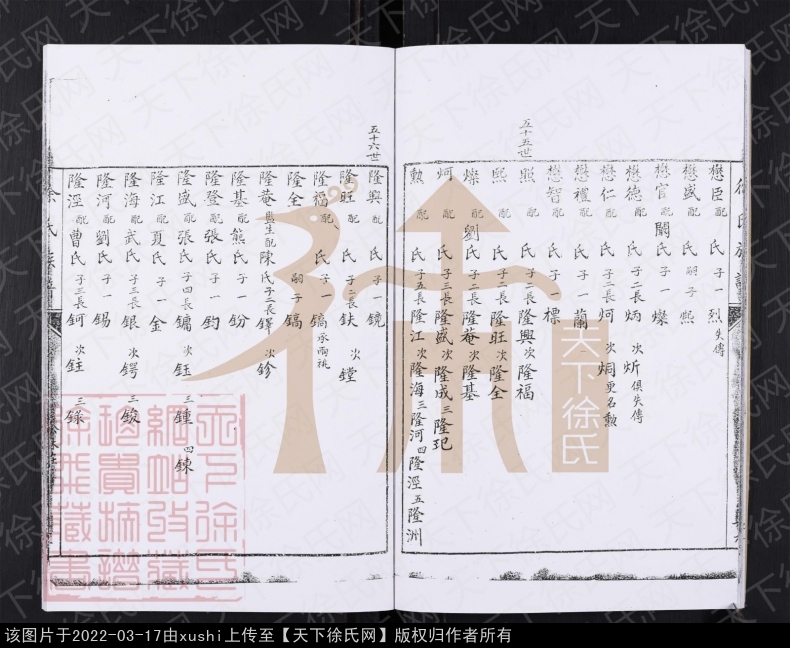 五十五世
懋臣配 氏子一烈失傳
懋盛配 氏嗣子熙
懋官配關氏子一燦
懋德配 氏子二長炳 次炘俱失傳
懋仁配 氏子二長炯 次焗更名勲
懋禮配 氏子一蘭
懋智配 氏子一標
照配 氏子二長隆興 次隆福
熙配 氏子二長隆旺 次隆全
燦配劉氏子二長隆菴 次隆基
炯配 氏子三長隆盛 次隆成 三隆玘
勲配 氏子五長隆江 次隆海 三隆河 四隆涇 五隆洲
五十六世
隆興配 氏子一鏡
隆旺配 氏子二長鈇 次鏜
隆福配 氏子一鎬承兩祧
隆全 嗣子鎬
隆菴監生配陳氏子二長鐸 次鉁
隆基配熊氏子一鈖
隆登配張氏子一鈞
隆盛配張氏子四長鏞 次鈺 三鍾 四鍊
隆江配夏氏子一金
隆海配武氏子三長銀 次鍔 三鋑
隆河配劉氏子一錫
隆涇配曹氏子三長鈳 次鈺 三錄
徐氏族譜
天下徐氏
天下徐氏网
该图片于2022-03-17由xushi上传至【天下徐氏网】版权归作者所有